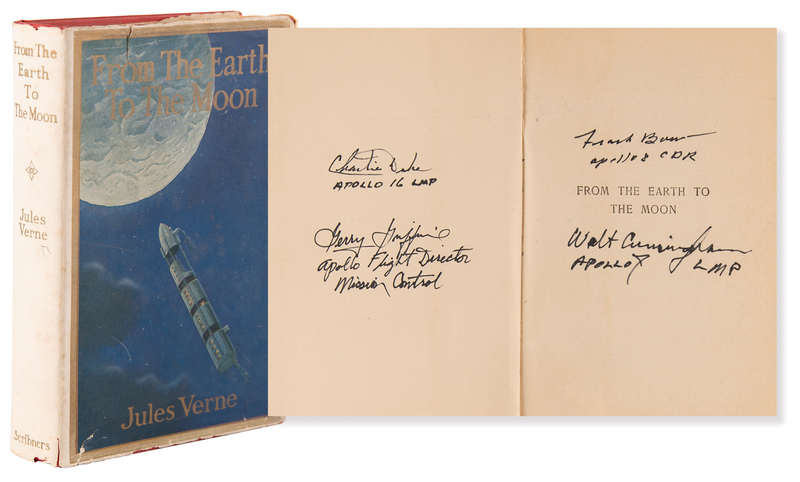 From The
Earth
To
The Moon
Jules
Verne
Scribners
From The Earth
To The Moon
Jules Verne
Charlie Duke
APOLLO 16 LMP
Gerry Griffin
Apollo Flight Director
Mission Control
Frank Borman
Apollo 8 CDR
FROM THE EARTH TO
THE MOON
Walt Cunningham
APOLLO 7 LMP